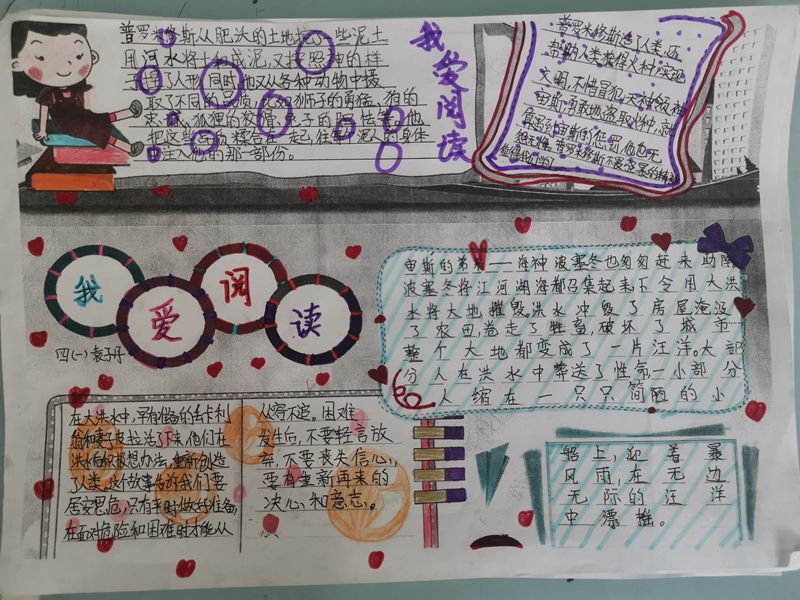 普罗米修斯从肥沃的土地挖了些泥土
用河水将土和成泥,又按照神的样
了人形同时他又从各种动物中摄
取了不同的品质,比如狮子的勇猛、狗的
忠诚,狐狸的狡猾,兔子的胆怯等,他
把这些全部糅合在一起,往到泥人的身体
注入他的那一部份。
我爱阅读
普罗米修斯造了人类,还
帮助人类获得火种,实现
文明,不惜冒犯天神
宙斯,勇敢地盗取火种,就
算遇到宙斯的惩罚他也无
怨无悔,普罗米修斯不畏
值得我们学习
我爱阅读
四(一)袁子丹
宙斯的弟弟——海神波塞冬也匆匆赶来助阵
波塞冬将江河湖海都召集起来下令用大洪
水将大地摧毁。洪水冲毁了房屋,淹没
了农田卷走了牲畜,破坏了城市
整个大地都变成了一片汪洋。大部
分人在洪水中葬送了性命一小部分
人缩在一只只简陋的小
船上,迎着暴
风雨,在无边
无际的汪洋
中漂摇。
在大洪水中,早有准备的丢卡利
翁和妻子皮拉活了下来,他们在
洪水后积极想办法,重新创造
了人类,这个故事告诉我们要
居安思危,只有平时做好准备,
在面对危险和困难时才能从
从容不迫。困难
发生后,不要轻言放
弃,不要丧失信心,
要有重新再来的
决心,和意志。